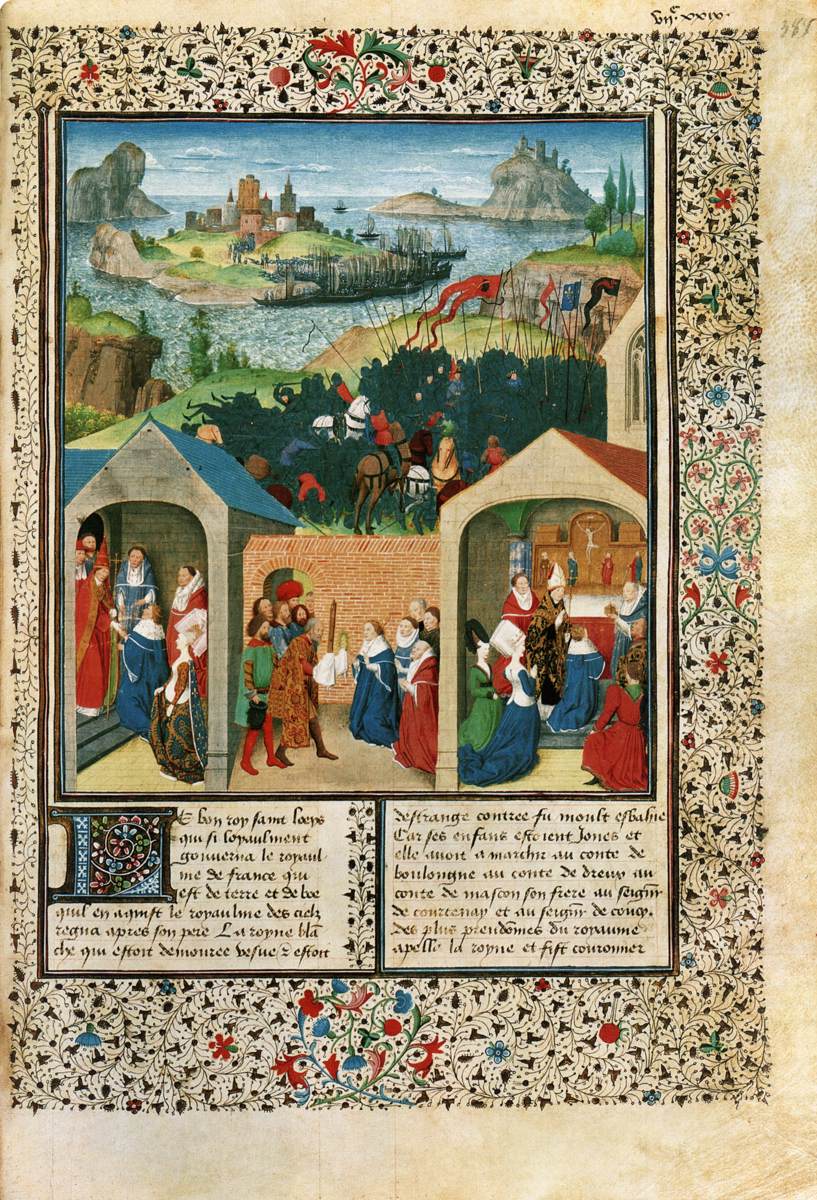 vijc xxix.
385
LE bon roy saint loeys
qui si loyaulment
gouverna le royaul
me de france qui
est de terre et de boe
quil en aquist le royaulme des cielz
regna apres son pere La royne blā
che qui estoit demouree vesue et estoit
destrange contree fu moult esbahie
Car ses enfans estoient Jones et
elle avoit a marchir au conte de
boulongne au conte de dreux au
conte de mascon son frere au seignr
de courtenay et au seignr de coucy.
des plus preudōmes du royaume
apella la royne et fist couronner